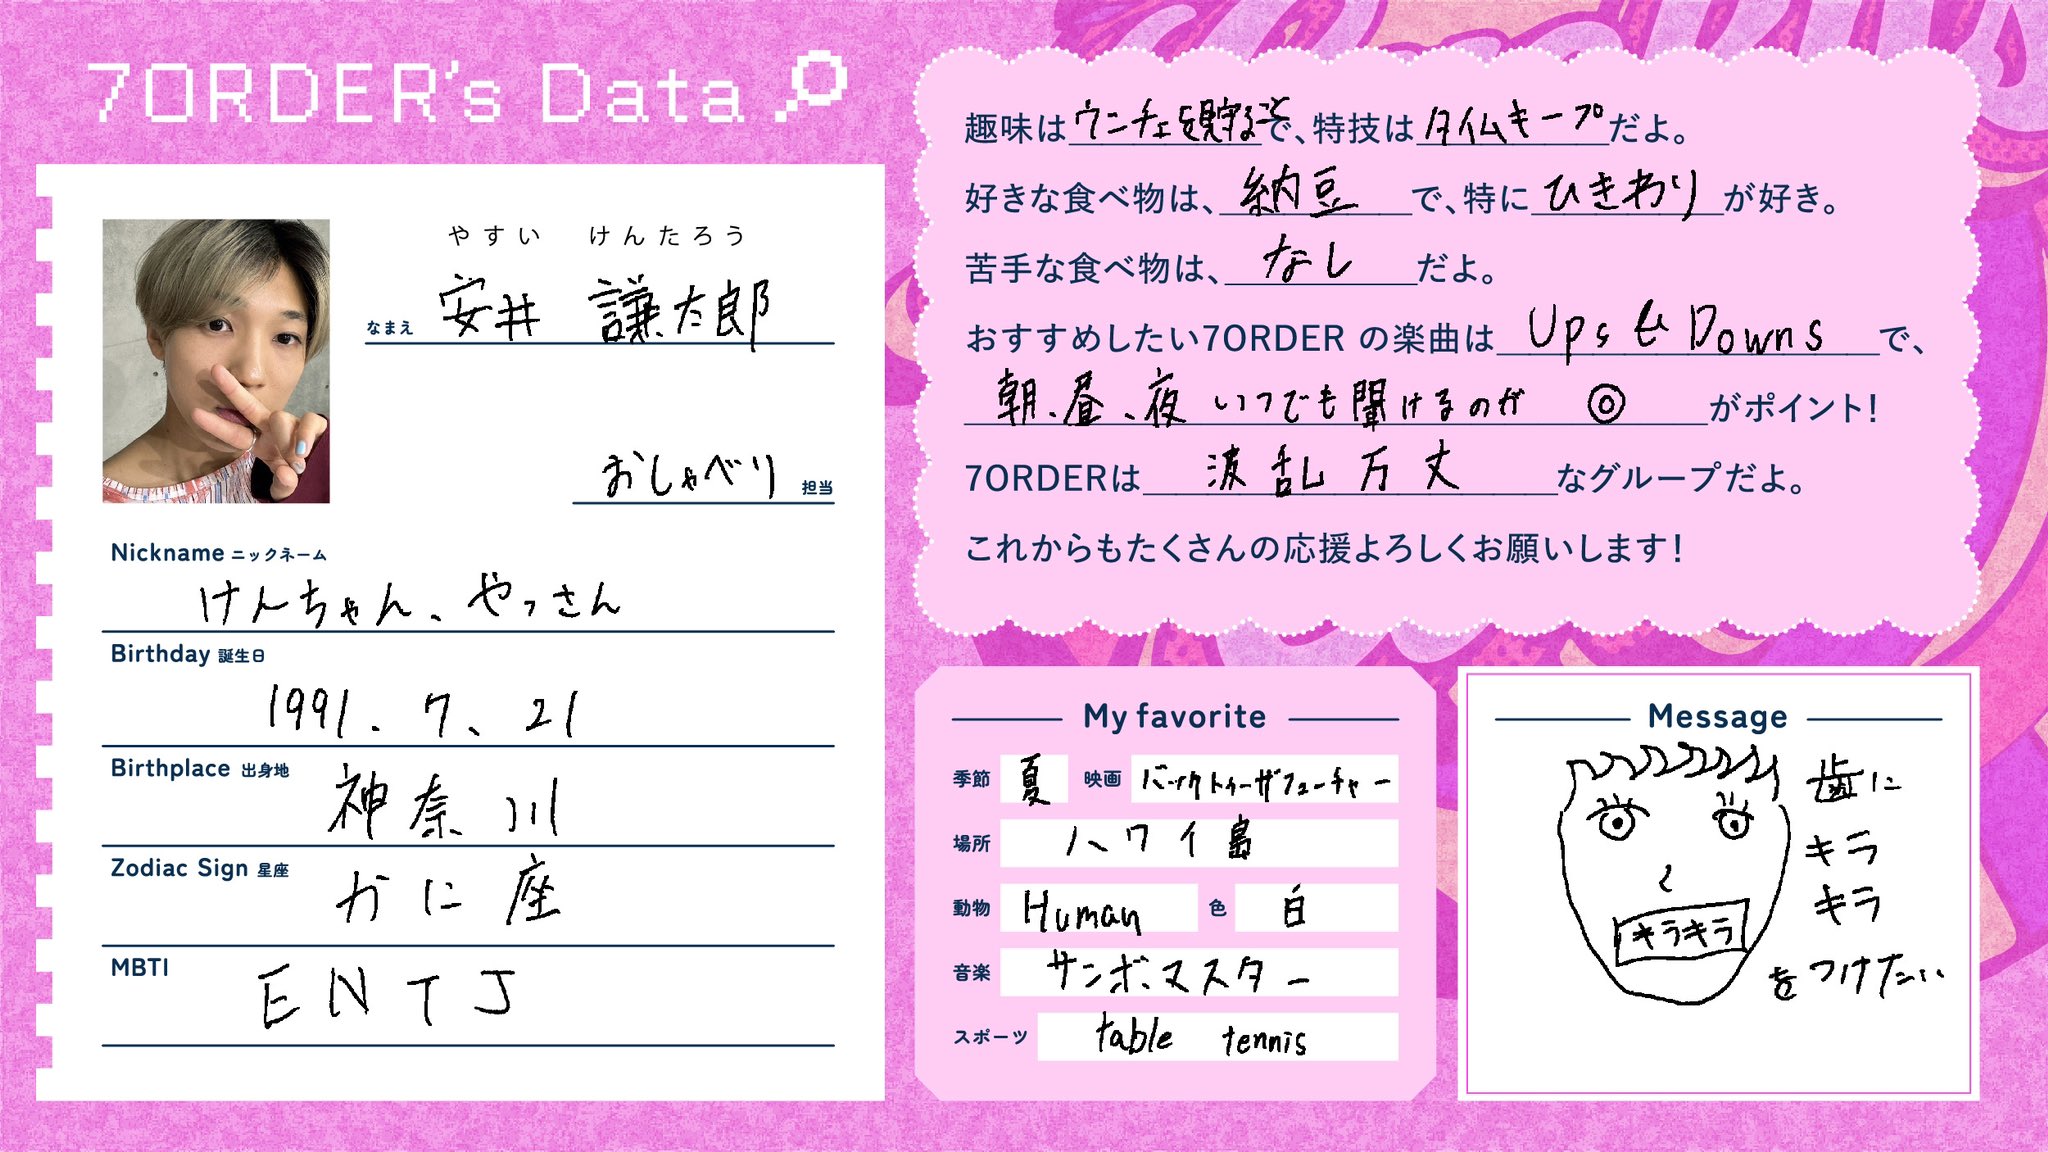 7ORDER's Data
やすい けんたろう
なまえ 安井 謙太郎
おしゃべり 担当
Nickname ニックネーム
けんちゃん、やっさん
Birthday 誕生日
1991.7.21
Birthplace 出身地
神奈川
Zodiac Sign 星座
かに座
MBTI
ENTJ
趣味はウンチェを貯ることで、特技はタイムキープだよ。
好きな食べ物は、納豆で、特にひきわりが好き。
苦手な食べ物は、なしだよ。
おすすめしたい7ORDER の楽曲はUps & Downsで、
朝、昼、夜いつでも聞けるのが ◎がポイント!
7ORDERは波乱万丈なグループだよ。
これからもたくさんの応援よろしくお願いします!
My favorite
季節 夏 映画 バックトゥーザフューチャー
場所 ハワイ島
動物 Human 色 白
音楽 サンボマスター
スポーツ table tennis
Message
歯に
キラ
キラ
をつけたい
キラキラ